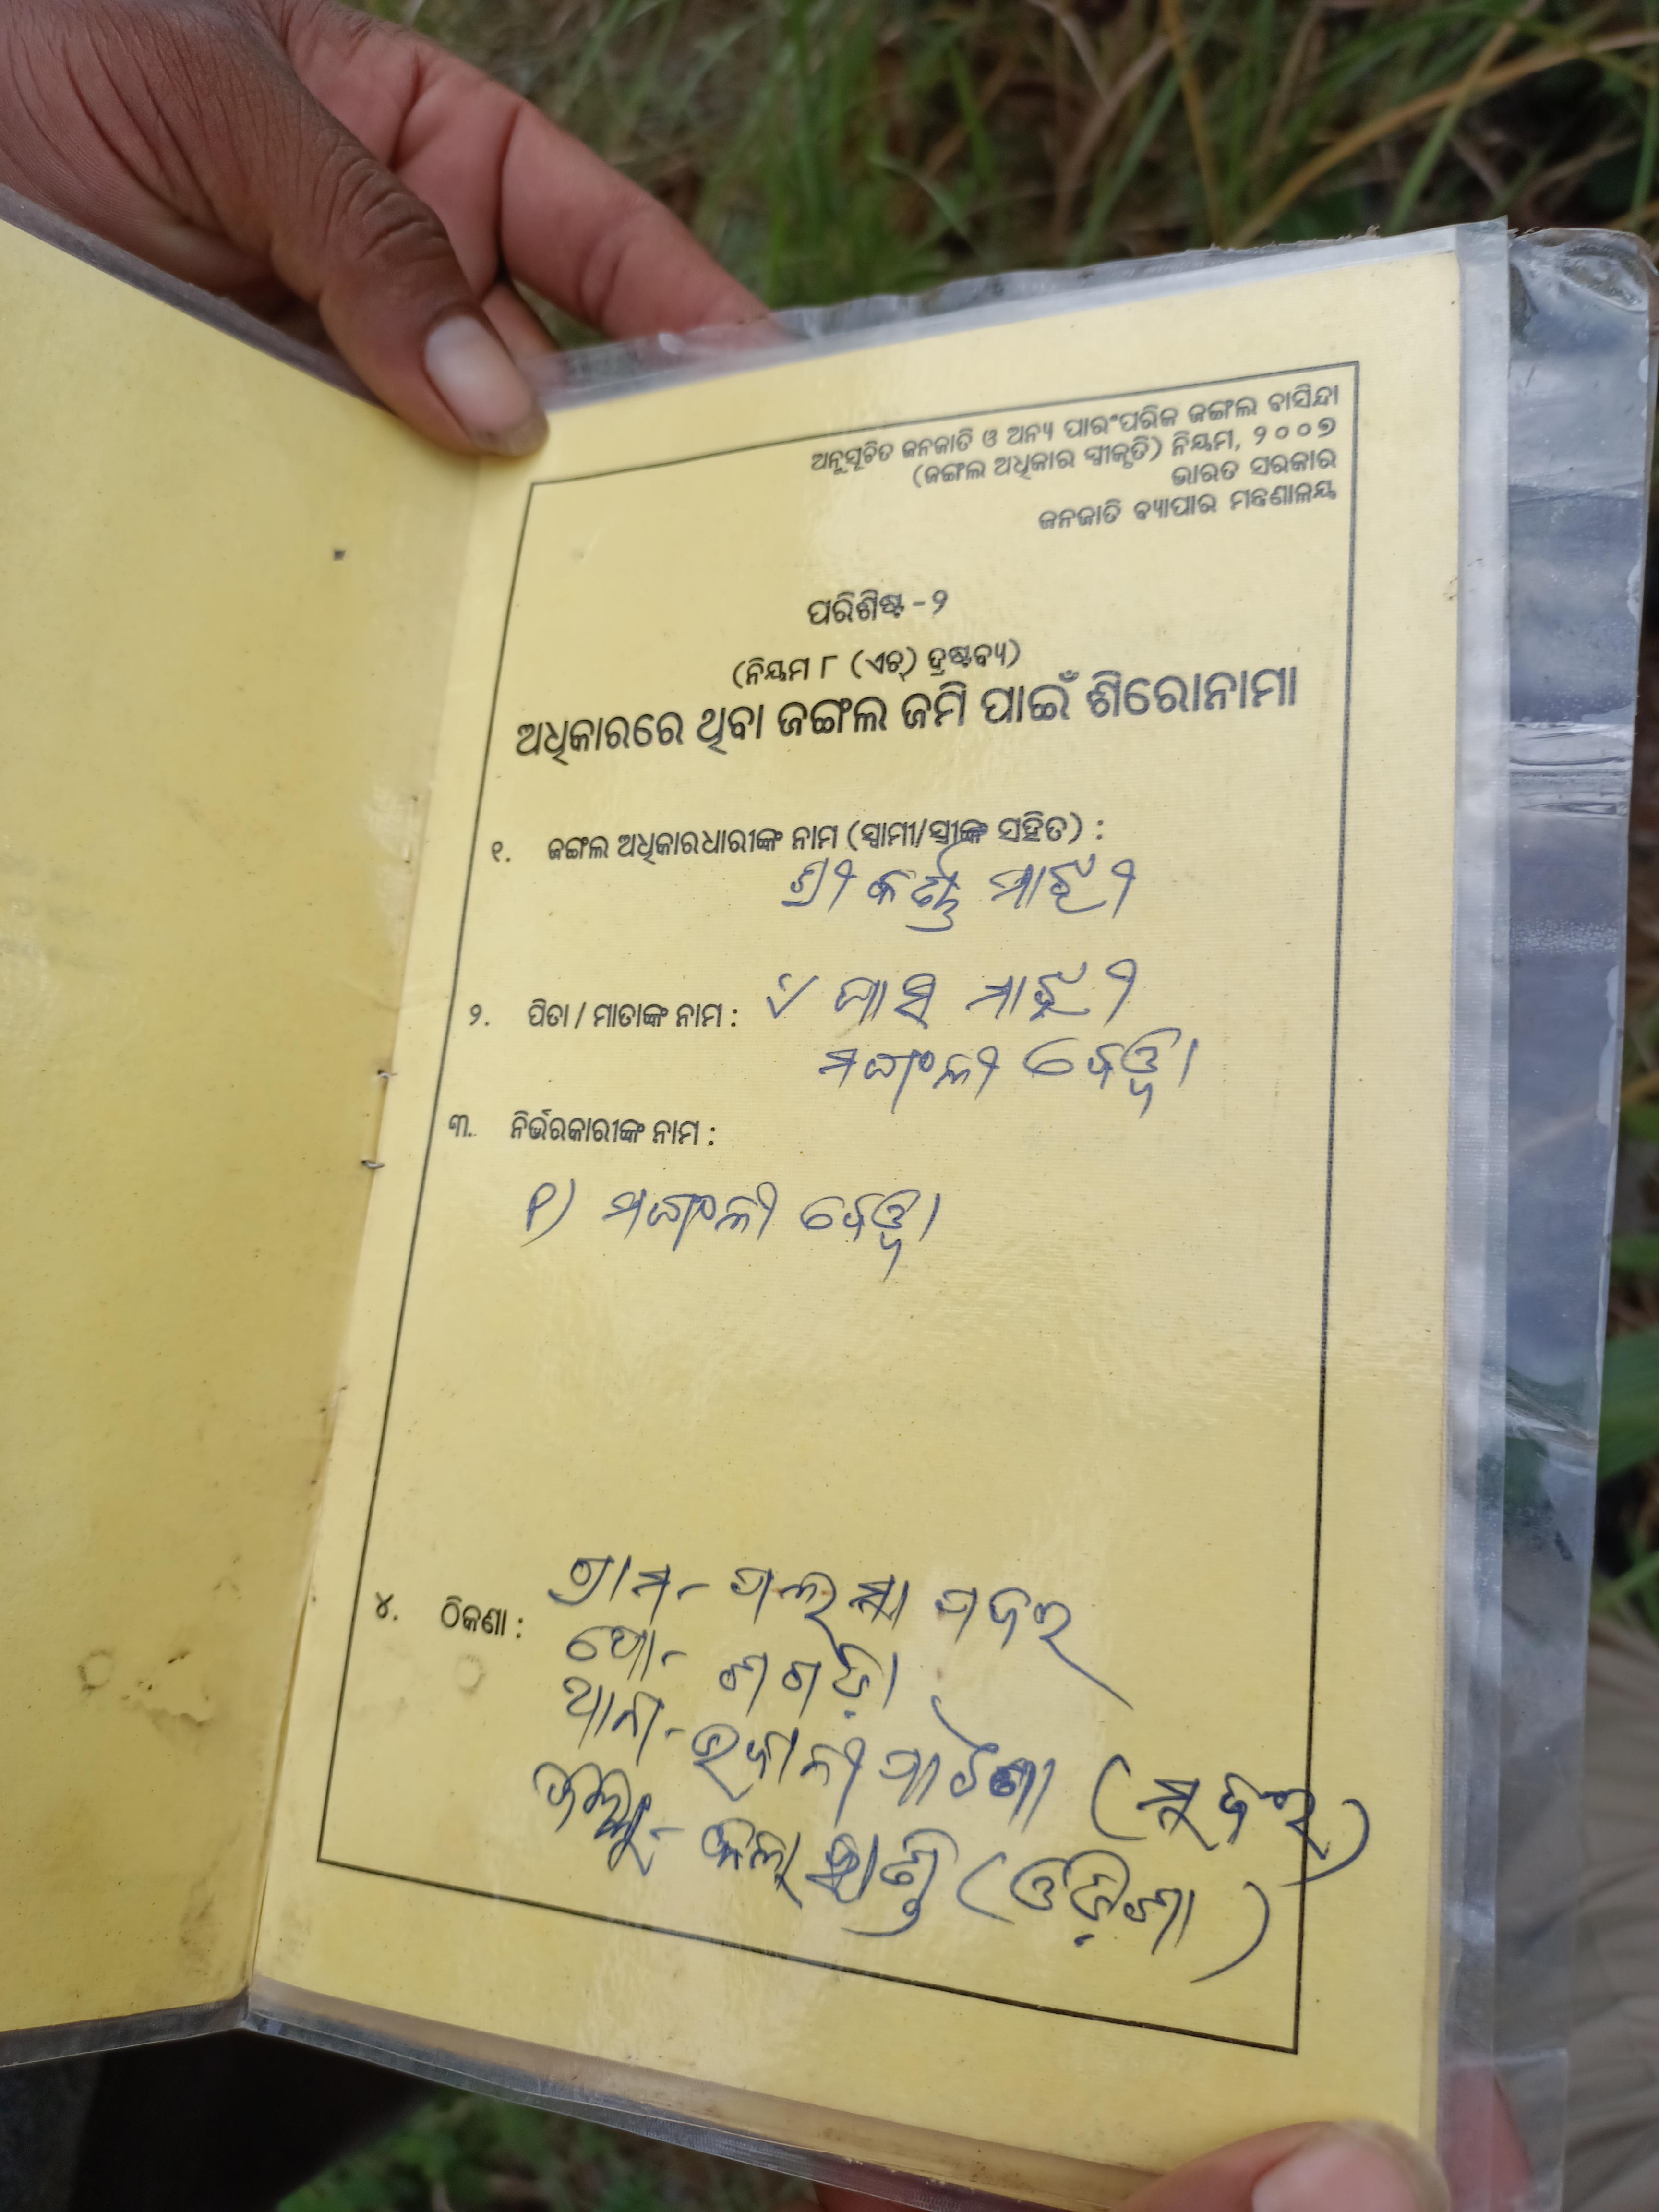 ଅନୁସୂଚିତ ଜନଜାତି ଓ ଅନ୍ୟ ପାରଂପରିକ ଜଙ୍ଗଲ ବାସିନ୍ଦା
(ଜଙ୍ଗଲ ଅଧିକାର ସ୍ୱୀକୃତି) ନିୟମ, ୨୦୦୭
ଭାରତ ସରକାର
ଜନଜାତି ବ୍ୟାପାର ମନ୍ତ୍ରଣାଳୟ
ପରିଶିଷ୍ଟ - ୨
(ନିୟମ ୮ (ଏଚ୍) ଦ୍ରଷ୍ଟବ୍ୟ)
ଅଧିକାରରେ ଥିବା ଜଙ୍ଗଲ ଜମି ପାଇଁ ଶିରୋନାମା
୧. ଜଙ୍ଗଲ ଅଧିକାରଧାରୀଙ୍କ ନାମ (ସ୍ୱାମୀ/ସ୍ତ୍ରୀଙ୍କ ସହିତ) :
ଶ୍ରୀ ମାଝୀ
୨. ପିତା / ମାତାଙ୍କ ନାମ : ମାଝୀ
୩. ନିର୍ଭରକାରୀଙ୍କ ନାମ :
୧)
୪. ଠିକଣା : ଗ୍ରାମ-
ପୋ-
ଥାନା- ଭବାନୀପାଟଣା
କଳାହାଣ୍ଡି (ଓଡ଼ିଶା)